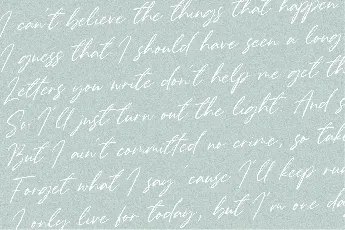 I can't believe the things that happen
I guess that I should have seen a long
Letters you write don't help me get th
So I'll just turn out the light. And s
But I ain't committed no crime, so take
Forget what I say. cause I'll keep run
I only live for today, but I'm one da